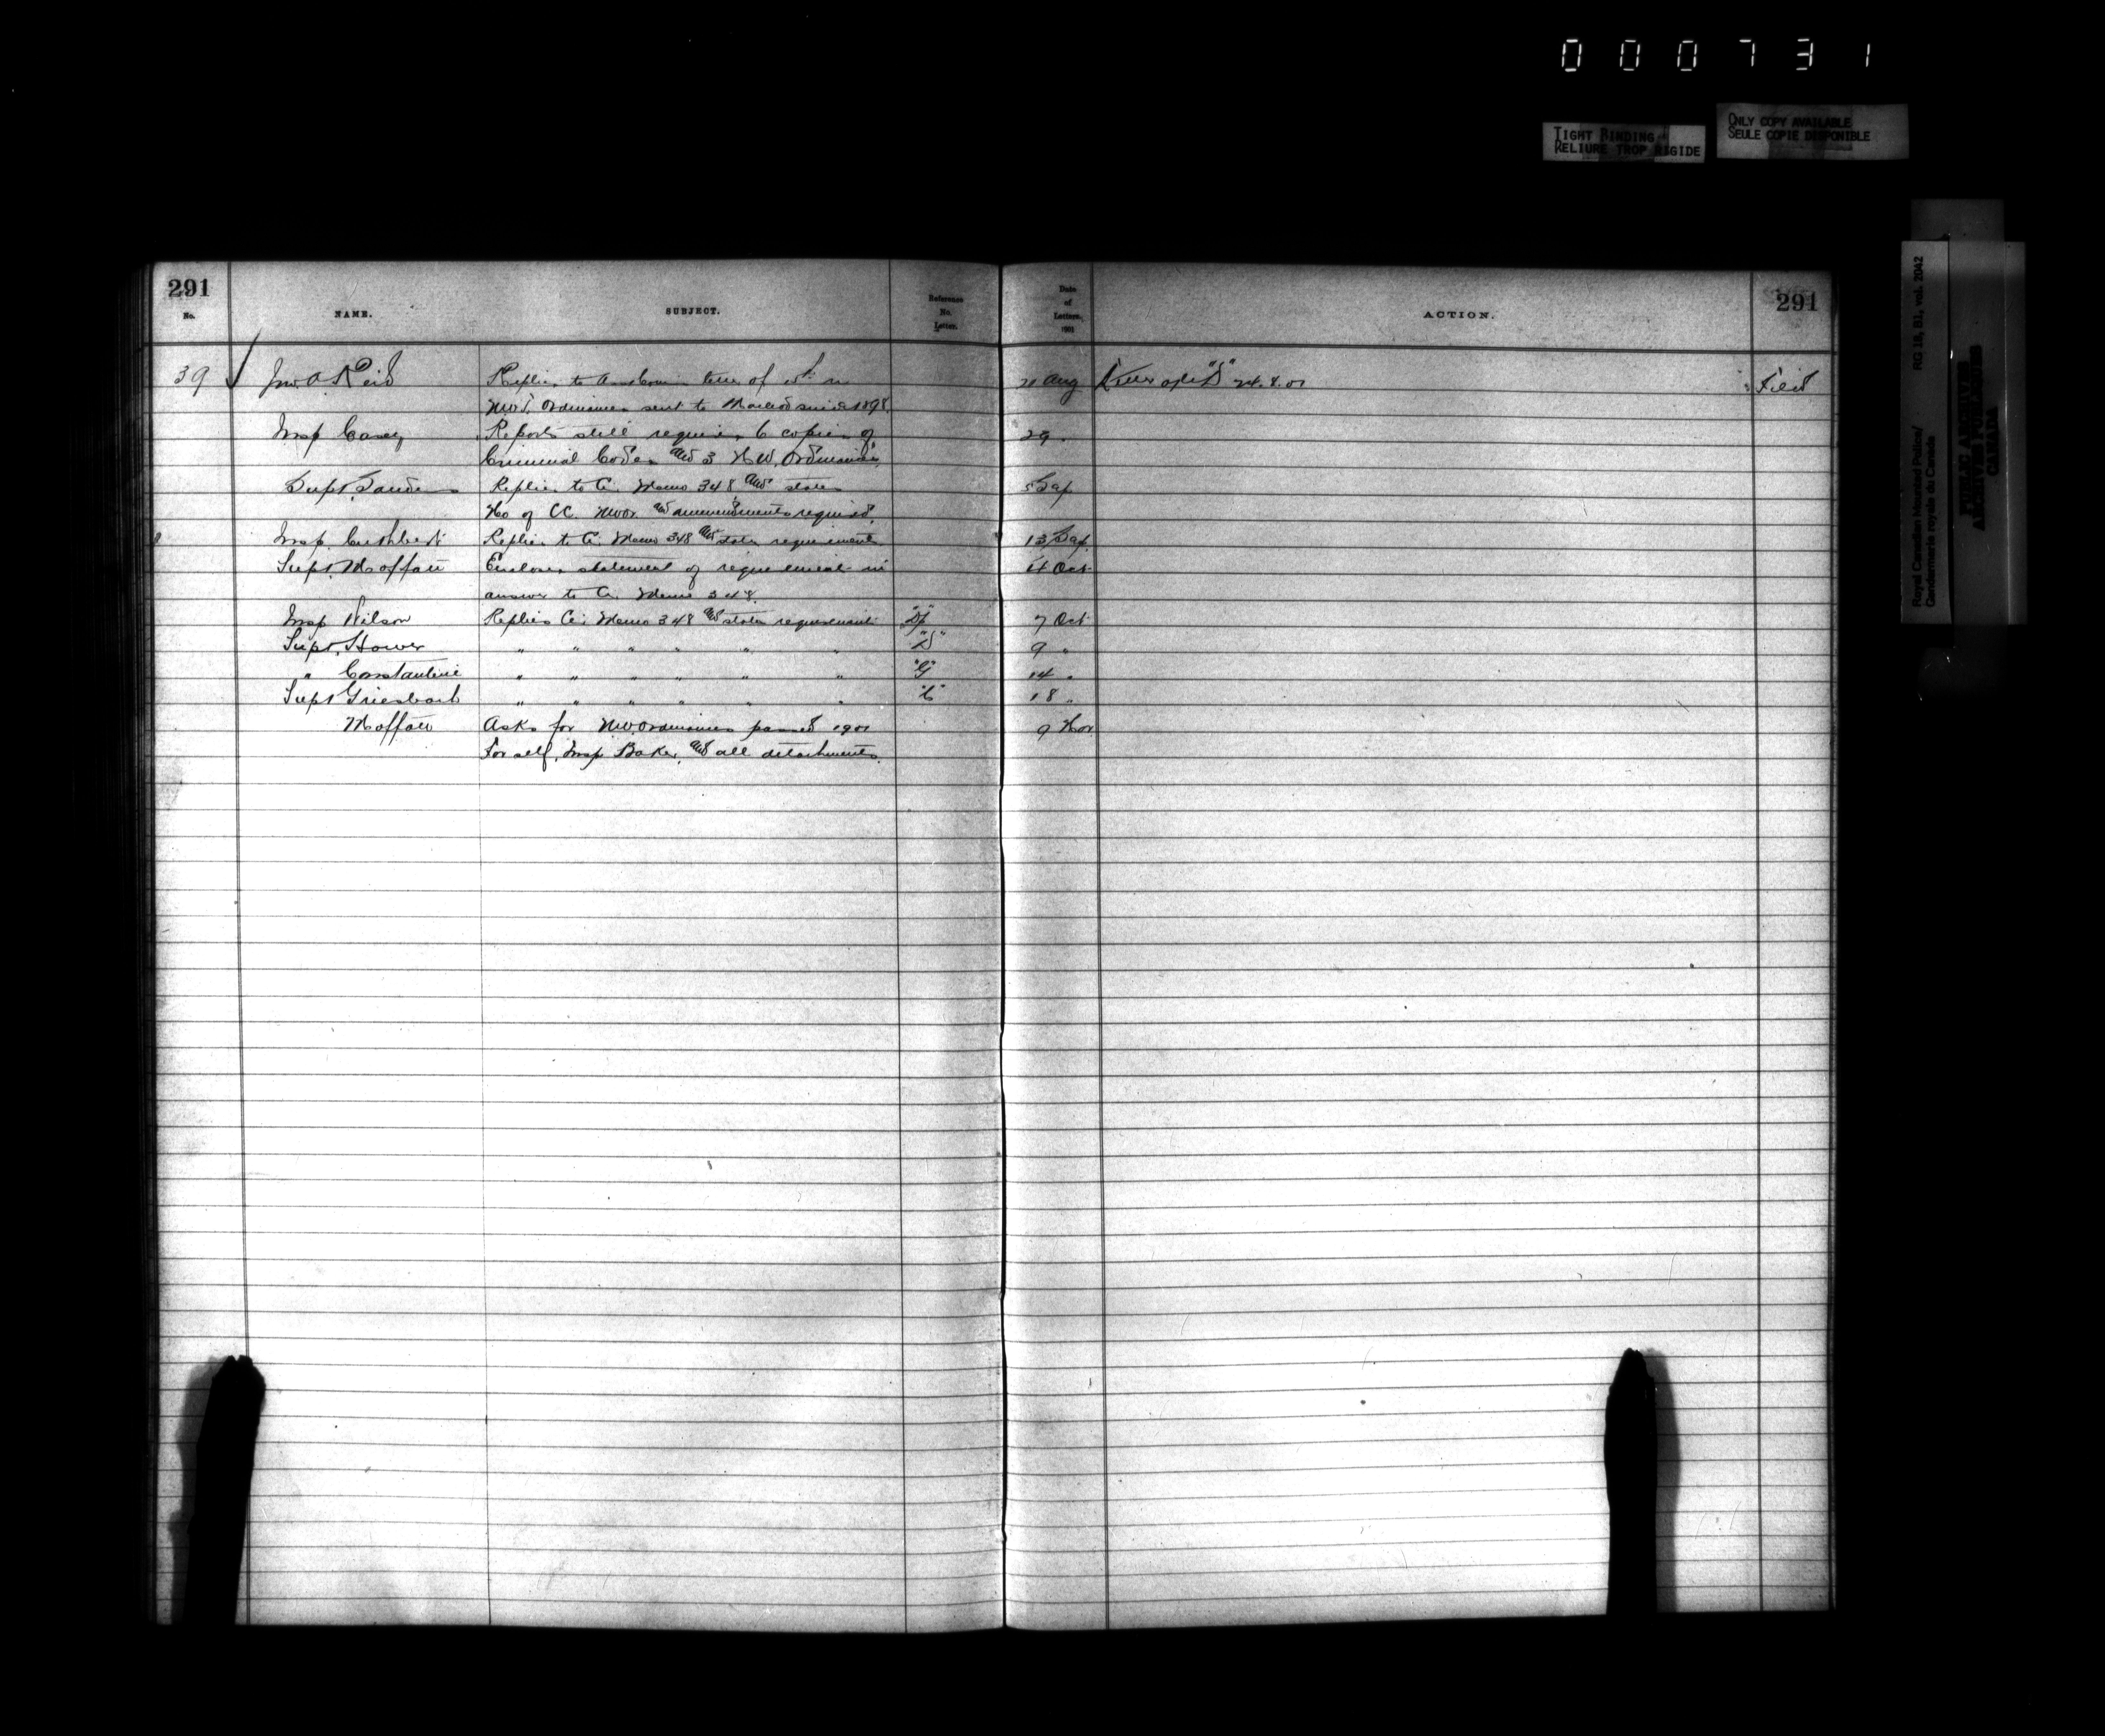 000731
TIGHT BINDING
RELIURE TROP RIGIDE
ONLY COPY AVAILABLE
SEULE COPIE DISPONIBLE
Royal Canadian Mounted Police/ RG 18, B1, vol. 2042
Gendarmerie royale du Canada
PUBLIC ARCHIVES
ARCHIVES PUBLIQUES
CANADA
291 291
No. NAME. SUBJECT. Reference No. Letter. Date of Letters. 1901 ACTION.
39 Jno. A. Reid Replies to letter of 15th re 21 Aug 24.8.01 Filed
N.W.T. Ordinances sent to Macleod since 1898.
Insp Casey Reports still requires 6 copies of 29 "
Criminal Codes and 3 N.W. Ordinances
Supt. Sanders Replies to C. Memo 348 and states 5 Sep
No of CC. NWOr. and ammendments required.
Insp. Cuthbert Replies to C. Memo 348 and states requirements 13 Sep.
Supt. Moffatt Encloses statement of requirements in 4 Oct
answer to C. Memo 348.
Insp Wilson Replies C. Memo 348 and states requirements 7 Oct
Supt. Howe " " " " " " "D" 9 "
" Constantine " " " " " " "G" 14 "
Supt Griesbach " " " " " " "C" 18 "
Moffatt Asks for NW. Ordinances passed 1901 9 Nov
For self, Insp Baker, and all detachments.